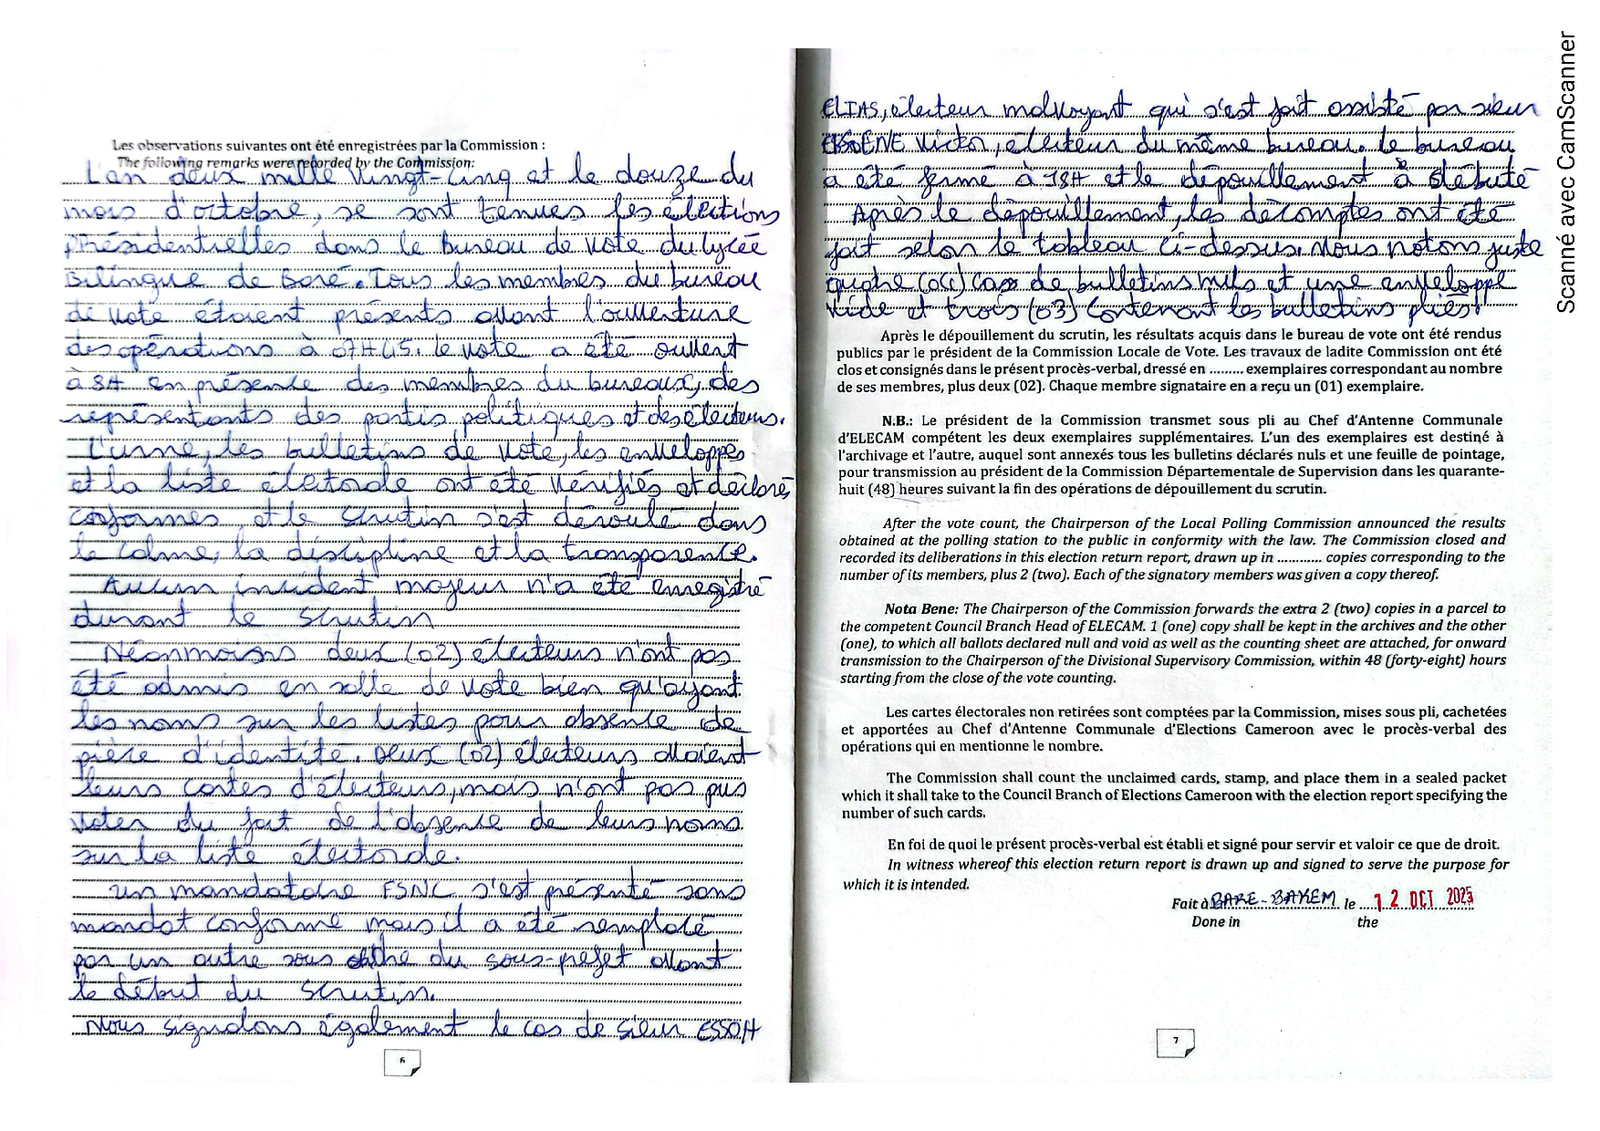 Les observations suivantes ont été enregistrées par la Commission :
The following remarks were recorded by the Commission:
L'an deux mille vingt-cinq et le douze du
mois d'octobre, se sont tenues les élections
présidentielles dans le bureau de vote du lycée
Bilingue de Baré. Tous les membres du bureau
de vote étaient présents avant l'ouverture
des opérations à 07H45. le vote a été ouvert
à 8H en présence des membres du bureaux, des
représentants des partis politiques et des électeurs.
L'urne, les bulletins de vote, les enveloppes
et la liste électorale ont été vérifiés et déclarés
conformes, et le scrutin s'est déroulé dans
le calme, la discipline et la transparence.
Aucun incident majeur n'a été enregistré
durant le scrutin
Néanmoins deux (02) électeurs n'ont pas
été admis en salle de vote bien qu'ayant
les noms sur les listes pour absence de
pièce d'identité. Deux (02) électeurs avaient
leurs cartes d'électeurs, mais n'ont pas pus
voter du fait de l'absence de leurs noms
sur la liste électorale.
un mandataire FSNC s'est présenté sans
mandat conforme mais il a été remplacé
par un autre sous du sous-préfet avant
le début du scrutin.
Nous signalons également le cas de sieur ESSOH
6
ELIAS, électeur malvoyant qui s'est fait assisté par sieur
Victor, électeur du même bureau. le bureau
a été fermé à 18H et le dépouillement à débuté
Après le dépouillement, les décomptes ont été
fait selon le tableau ci-dessus. Nous notons juste
quatre (04) cas de bulletins nuls et une enveloppe
vide et trois (03) contenant les bulletins pliés.
Après le dépouillement du scrutin, les résultats acquis dans le bureau de vote ont été rendus
publics par le président de la Commission Locale de Vote. Les travaux de ladite Commission ont été
clos et consignés dans le présent procès-verbal, dressé en ......... exemplaires correspondant au nombre
de ses membres, plus deux (02). Chaque membre signataire en a reçu un (01) exemplaire.
N.B.: Le président de la Commission transmet sous pli au Chef d'Antenne Communale
d'ELECAM compétent les deux exemplaires supplémentaires. L'un des exemplaires est destiné à
l'archivage et l'autre, auquel sont annexés tous les bulletins déclarés nuls et une feuille de pointage,
pour transmission au président de la Commission Départementale de Supervision dans les quarante-
huit (48) heures suivant la fin des opérations de dépouillement du scrutin.
After the vote count, the Chairperson of the Local Polling Commission announced the results
obtained at the polling station to the public in conformity with the law. The Commission closed and
recorded its deliberations in this election return report, drawn up in ............ copies corresponding to the
number of its members, plus 2 (two). Each of the signatory members was given a copy thereof.
Nota Bene: The Chairperson of the Commission forwards the extra 2 (two) copies in a parcel to
the competent Council Branch Head of ELECAM. 1 (one) copy shall be kept in the archives and the other
(one), to which all ballots declared null and void as well as the counting sheet are attached, for onward
transmission to the Chairperson of the Divisional Supervisory Commission, within 48 (forty-eight) hours
starting from the close of the vote counting.
Les cartes électorales non retirées sont comptées par la Commission, mises sous pli, cachetées
et apportées au Chef d'Antenne Communale d'Elections Cameroon avec le procès-verbal des
opérations qui en mentionne le nombre.
The Commission shall count the unclaimed cards, stamp, and place them in a sealed packet
which it shall take to the Council Branch of Elections Cameroon with the election report specifying the
number of such cards.
En foi de quoi le présent procès-verbal est établi et signé pour servir et valoir ce que de droit.
In witness whereof this election return report is drawn up and signed to serve the purpose for
which it is intended.
Fait à BARE-BAKEM le 12 OCT 2025
Done in the
7
Scanné avec CamScanner